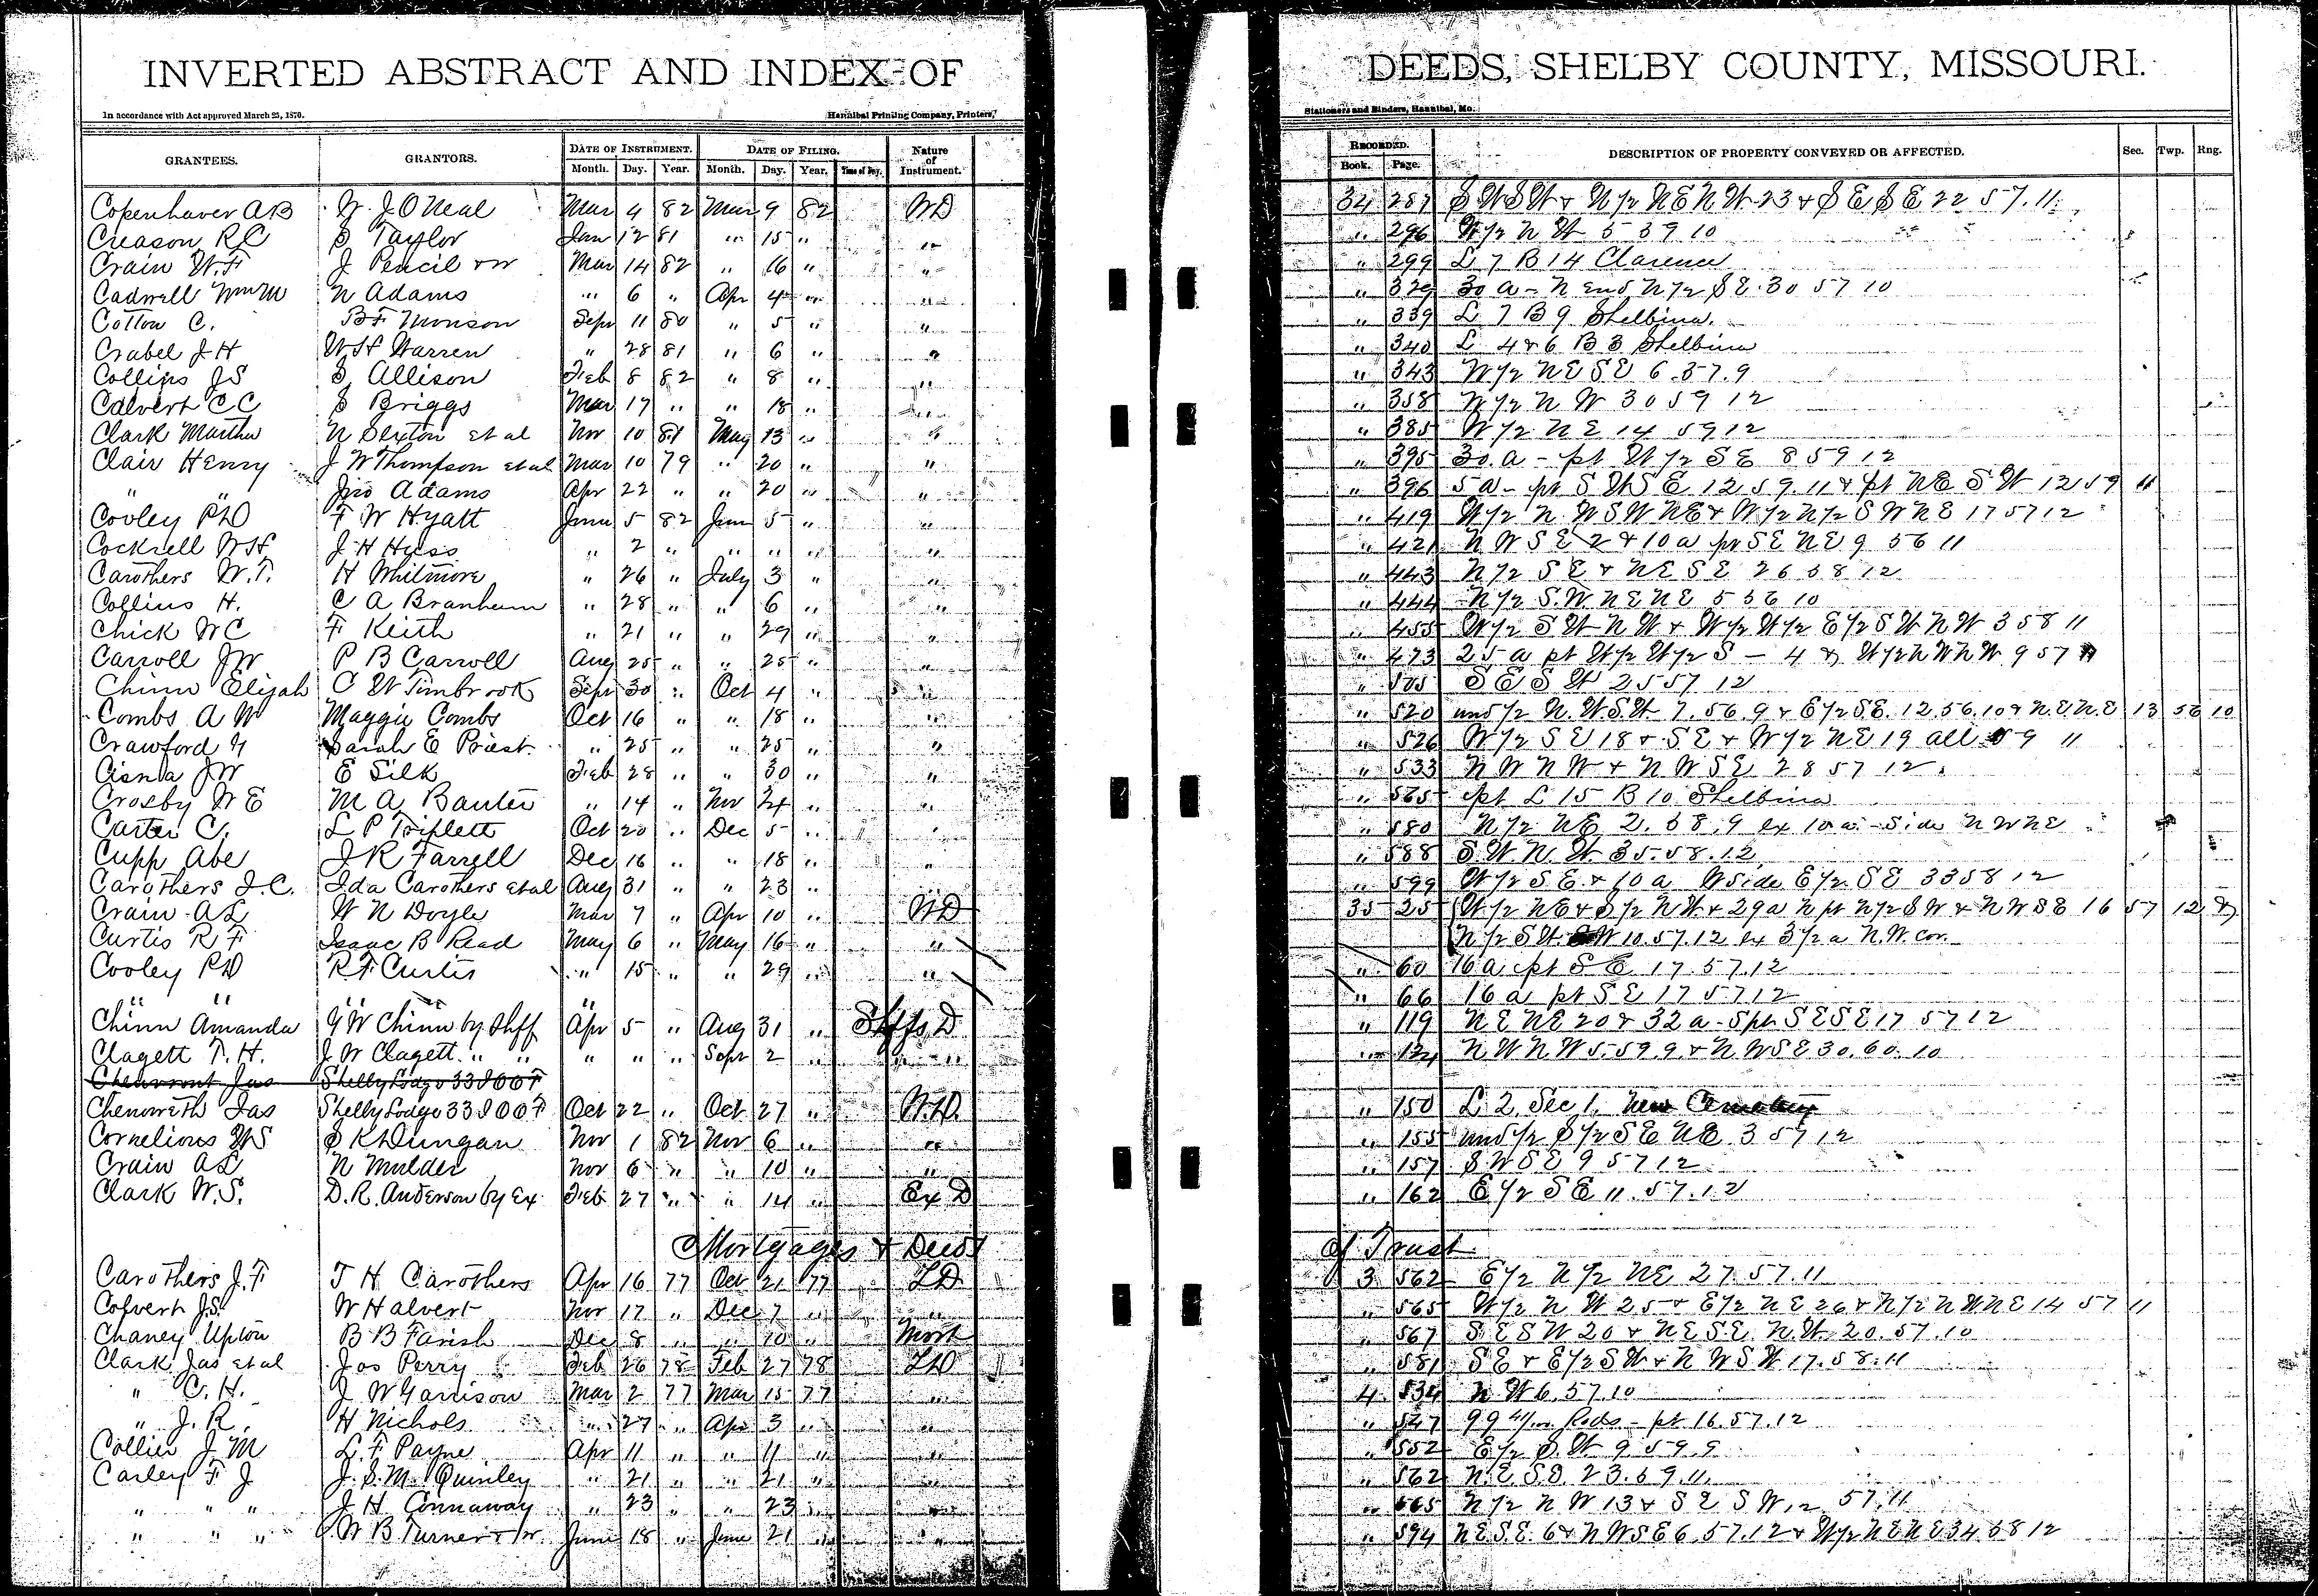 INVERTED ABSTRACT AND INDEX OF DEEDS, SHELBY COUNTY, MISSOURI.
In accordance with Act approved March 25, 1870. Hannibal Printing Company, Printers, Stationers and Binders, Hannibal, Mo.
GRANTEES. GRANTORS. DATE OF INSTRUMENT. DATE OF FILING. Nature of Instrument. RECORDED. DESCRIPTION OF PROPERTY CONVEYED OR AFFECTED. Sec. Twp. Rng.
Month. Day. Year. Month. Day. Year. Time of Day. Book. Page.
Copenhaver AB J O Neal Mar 4 82 Mar 9 82 WD 34 287 SWSW & N 1/2 NENW 23 & SESE 22 57.11
Creason RC S Taylor Jan 12 81 " 15 " " " 296 W 1/2 NW 5 59 10
Crain W.F. J Pencil & w Mar 14 82 " 16 " " " 299 L 7 B 14 Clarence
Cadwell Wm M N Adams " 6 " Apr 4 " " " 329 30 a - N end N 1/2 SE 30 57 10
Cotton C. BF Monson Sept 11 80 " 5 " " " 339 L 7 B 9 Shelbina.
Crabel J H WH Warren " 28 81 " 6 " " " 340 L 4 & 6 B 3 Shelbina
Collins JS S Allison Feb 8 82 " 8 " " " 343 W 1/2 NE SE 6.57.9
Calvert CC S Briggs Mar 17 " " 18 " " " 358 W 1/2 NW 30 59 12
Clark Martha N Sexton et al Nov 10 81 May 13 " " " 385 W 1/2 NE 14 59 12
Clair Henry J W Thompson et al Mar 10 79 " 20 " " " 395 30. a - pt W 1/2 SE 8 59 12
" " Jno Adams Apr 22 " " 20 " " " 396 5 a - pt SWSE 12 59.11 & pt NE SW 12 59 11
Cooley PD F W Hyatt June 5 82 June 5 " " " 419 W 1/2 N.WSWNE & W 1/2 N 1/2 SWNE 17 57 12
Cockrell WH J H Huss " 2 " " " " " " 421 NWSE 2 & 10 a pt SENE 9 56 11
Carothers W.T. H Whitmore " 26 " July 3 " " " 443 N 1/2 SE & NESE 26 58 12
Collins H. C A Branham " 28 " " 6 " " " 444 N 1/2 S.W.NENE 5 56 10
Chick WC F Keith " 21 " " 29 " " " 455 W 1/2 SWNW & W 1/2 W 1/2 E 1/2 SWNW 3 58 11
Carroll JW P B Carroll Aug 25 " " 25 " " " 473 25 a pt W 1/2 W 1/2 S - 4 & W 1/2 NWNW 9 57 11
Chinn Elijah C W Timbrook Sept 30 " Oct 4 " " " 505 SESW 25 57 12
Combs A W Maggie Combs Oct 16 " " 18 " " " 520 und 1/2 N.W.S.W 7.56.9 & E 1/2 SE. 12.56.10 & N.E.N.E 13 56 10
Crawford Sarah E Priest " 25 " " 25 " " " 526 W 1/2 SE 18 & SE & W 1/2 NE 19 all 59 11
Cisna JW E Silk Feb 28 " " 30 " " " 533 NWNW & NWSE 28 57 12.
Crosby W E M A Banter " 14 " Nov 24 " " " 565 pt L 15 B 10 Shelbina
Carter C. L P Triplett Oct 20 " Dec 5 " " " 580 N 1/2 NE 2.58.9 ex 10 a. - side NWNE
Cupp Abe J R Farrell Dec 16 " " 18 " " " 588 S.W.N.W. 35.58.12
Carothers J.C. Ida Carothers et al Aug 31 " " 23 " " " 599 W 1/2 SE & 10 a W side E 1/2 SE 33 58 12
Crain AL W N Doyle Mar 7 " Apr 10 " WD 35 25 W 1/2 NE & S 1/2 NW & 29 a N pt N 1/2 SW & NWSE 16 57 12 &
Curtis R F Isaac B Read May 6 " May 16 " " N 1/2 SW 10.57.12 ex 3 1/2 a N.W. cor.
Cooley PD R F Curtis " 15 " " 29 " " " 60 16 a pt SE 17.57.12
" " " " " " 66 16 a pt SE 17 57 12
Chinn Amanda GW Chinn by Shff Apr 5 " Aug 31 " Shffs D " 119 NENE 20 & 32 a - S pt SESE 17 57 12
Clagett T.H. J W Clagett " " " " " Sept 2 " " " " 124 NWNW 5.59.9 & N.WSE 30.60.10
Shelby Lodge 33 I O O F
Chenoweth Jas Shelby Lodge 33 I O O F Oct 22 " Oct 27 " W.D. " 150 L 2. Sec 1. New Cemetery
Cornelious WS S K Dungan Nov 1 82 Nov 6 " " " 155 und 1/2 S 1/2 SE NE 3 57 12
Crain AL N Mulder Nov 6 " " 10 " " " 157 SWSE 9 57 12
Clark W.S. D.R. Anderson by Ex. Feb 27 " " 14 " Ex D " 162 E 1/2 SE 11.57.12
Mortgages & Deeds of Trust
Carothers J.F T H Carothers Apr 16 77 Oct 21 77 TD 3 562 E 1/2 N 1/2 NE 27.57.11
Colvert J.S. W H alvert Nov 17 " Dec 7 " " " 565 W 1/2 NW 25 & E 1/2 NE 26 & N 1/2 NWNE 14 57 11
Chaney Upton B B Farish Dec 8 " " 10 " Mort " 567 SESW 20 & NESE. N.W. 20.57.10
Clark Jas et al Jos Perry Feb 26 78 Feb 27 78 TD " 581 SE & E 1/2 SW & NWSW 17.58.11
" C.H. J W Garrison Mar 2 77 Mar 15 77 " 4 534 NW 6.57.10
" J.R. H Nichols " 27 " Apr 3 " " " 547 99 Rods - pt 16.57.12
Collier J M L. F Payne Apr 11 " " 11 " " " 552 E 1/2 S.W. 9 59.9
Carley F J J.S.M. Quinley " 21 " " 21 " " " 562 N.E.S.E. 23.59.11.
" " " J H Connaway " 23 " " 23 " " " 565 N 1/2 NW 13 & SESW 12 57.11
" " " W B Turner & W. June 18 " June 21 " " " 594 NE.S.E. 6 & NWSE 6.57.12 & W 1/2 NENE 34 58 12